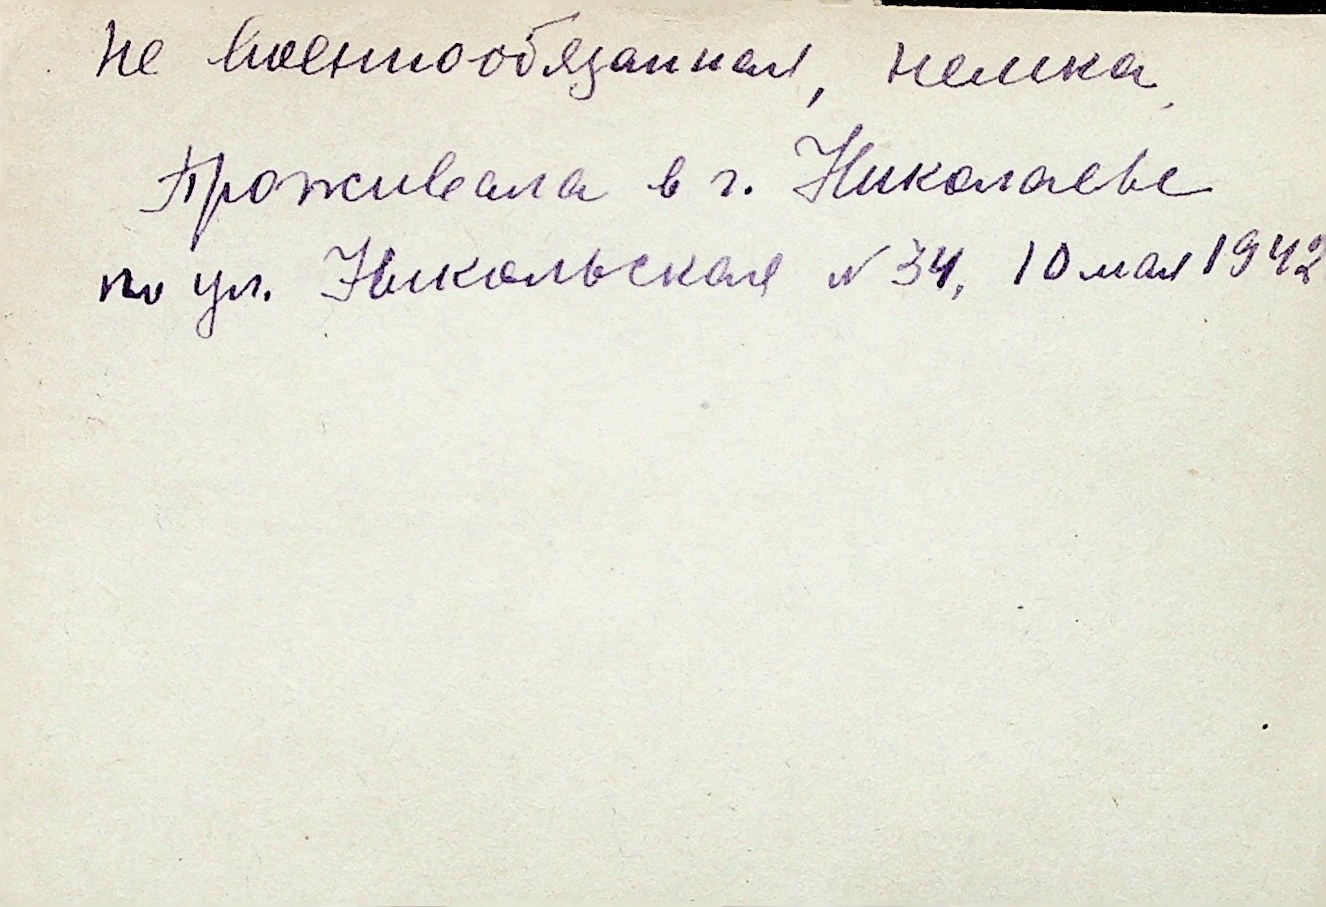 не военнообязанная, немка,
Проживала в г. Николаеве
по ул. Никольская N 34, 10 мая 1942